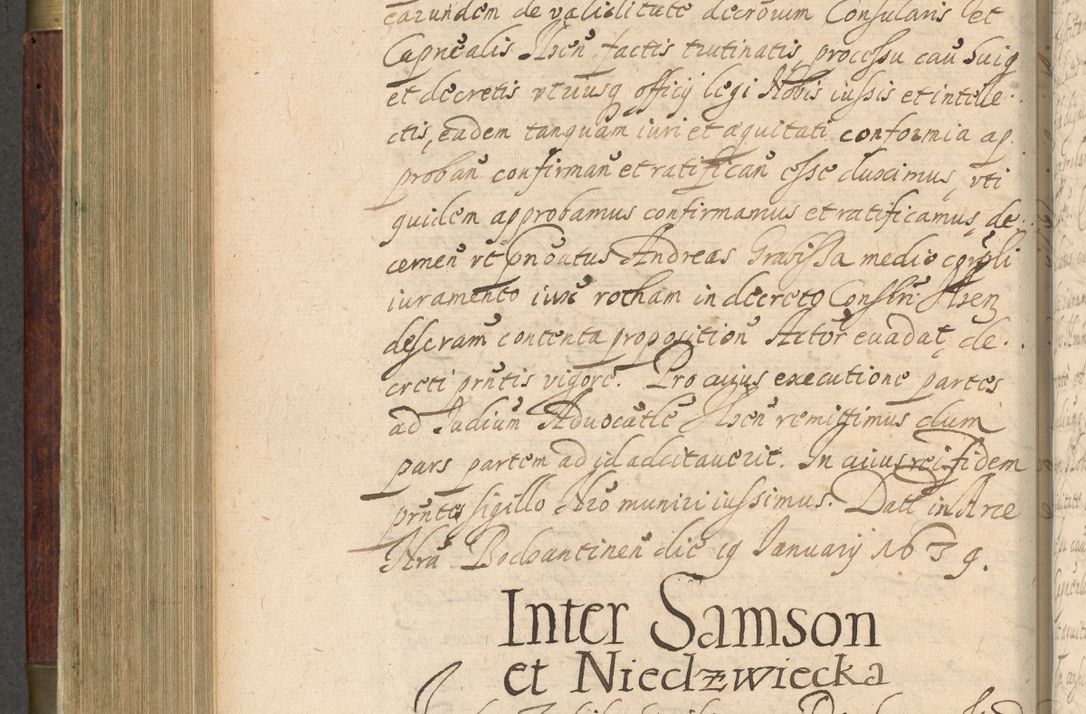 earundem de validitate decrorum Consularis et
Capnealis Ilsen factis trutinatis, processu cau huiq
et decretis vtriusq officij legi Nobis iussis et intelle
ctis, eadem tanquam iuri et æquitati conformia ap
proban confirman et ratifican esse duximus, vti
quidem approbamus confirmamus et ratificamus, de
cernen vt Andreas Grasissa medio
iuramento iux rotham in decreto Ilsen
descram contenta proposition Actor evadat, de
creti pntis vigore. Pro cuius executione partes
ad Iudium Advocatle Ilsen remittimus dum
pars partem ad id adcitaverit. In cuius rei fidem
pntes sigillo Nro muniri iussimus. Datt in Arce
Nra Bodzantinen die 19 Ianuarij 1639.
Inter Samson
et Niedzwiecka